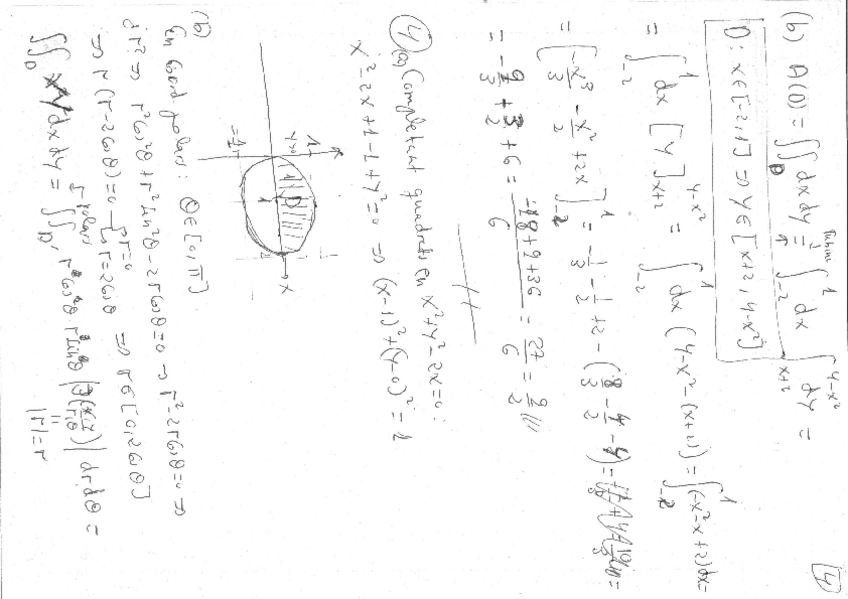 4
(b) A(D) = ∬_D dxdy = ∫_{-2}^{1} dx ∫_{x+2}^{4-x²} dy =
Fubini
D: x∈[-2,1] ⇒ y∈[x+2, 4-x²]
= ∫_{-2}^{1} dx [y]_{x+2}^{4-x²} = ∫_{-2}^{1} dx (4-x²-(x+2)) = ∫_{-2}^{1} (-x²-x+2)dx =
= [-x³/3 - x²/2 + 2x]_{-2}^{1} = -1/3 - 1/2 + 2 - (8/3 - 4/2 - 4) =
= -9/3 + 3/2 + 6 = (-18+9+36)/6 = 27/6 = 9/2 //
4 (a) Completant quadrats en x²+y²-2x=0:
x²-2x+1-1+y²=0 ⇒ (x-1)²+(y-0)²=1
x
D
1
(b)
En coord. polars: θ∈[0,π]
r² ⇒ r²cos²θ+r²sin²θ-2rcosθ=0 → r²-2rcosθ=0 ⇒
⇒ r(r-2cosθ)=0 r=0 r=2cosθ ⇒ r∈[0,2cosθ]
∬_D dxdy = ∬_{D'} r cosθ r sinθ |J(x,y / r,θ)| drdθ =
polars
|r|=r